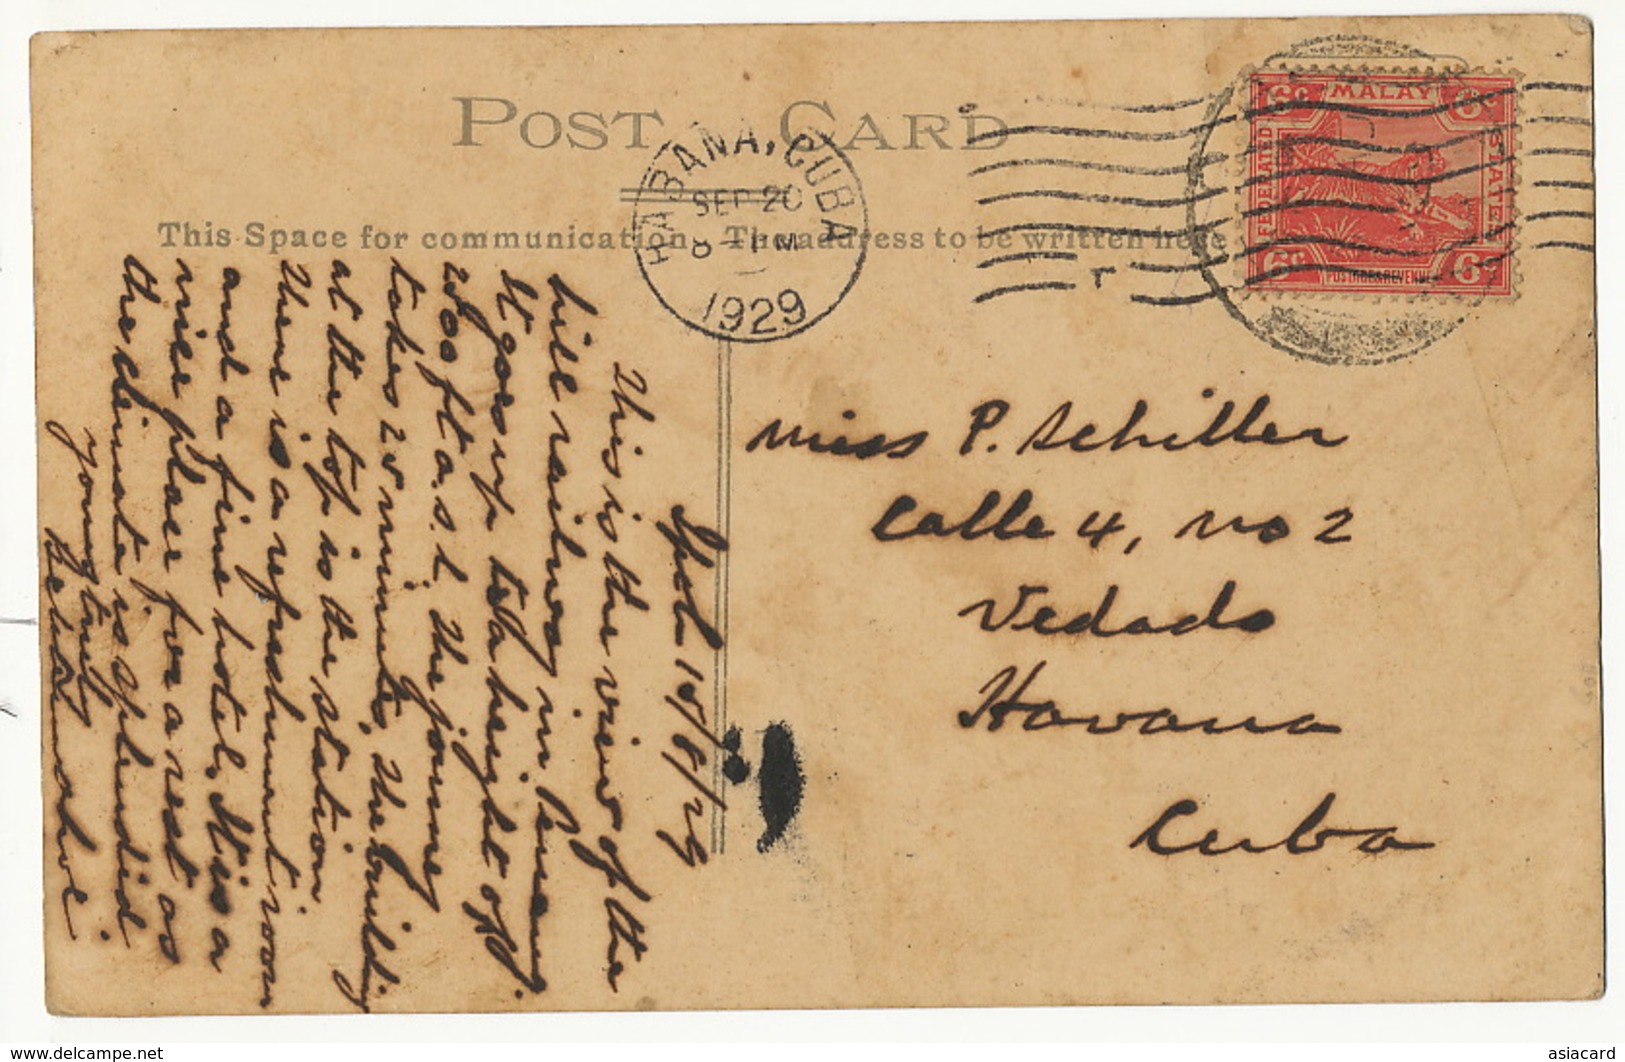 POST CARD
This Space for communication. The address to be written here
HABANA, CUBA
SEP 20
1929
FEDERATED MALAY STATES
6c 6c
6c 6c
POSTAGE & REVENUE
Miss P. Schiller
Calle 4, No 2
Vedado
Havana
Cuba
Ipoh 18/8/29
This is the view of the
hill railway in Penang.
It goes up to a height of
2200 ft a.s.l. The journey
takes 20 minutes. The building
at the top is the station
There is a refreshment room
and a fine hotel. It is a
nice place for a rest as
the climate is splendid
yours truly
www.delcampe.net
asiacard